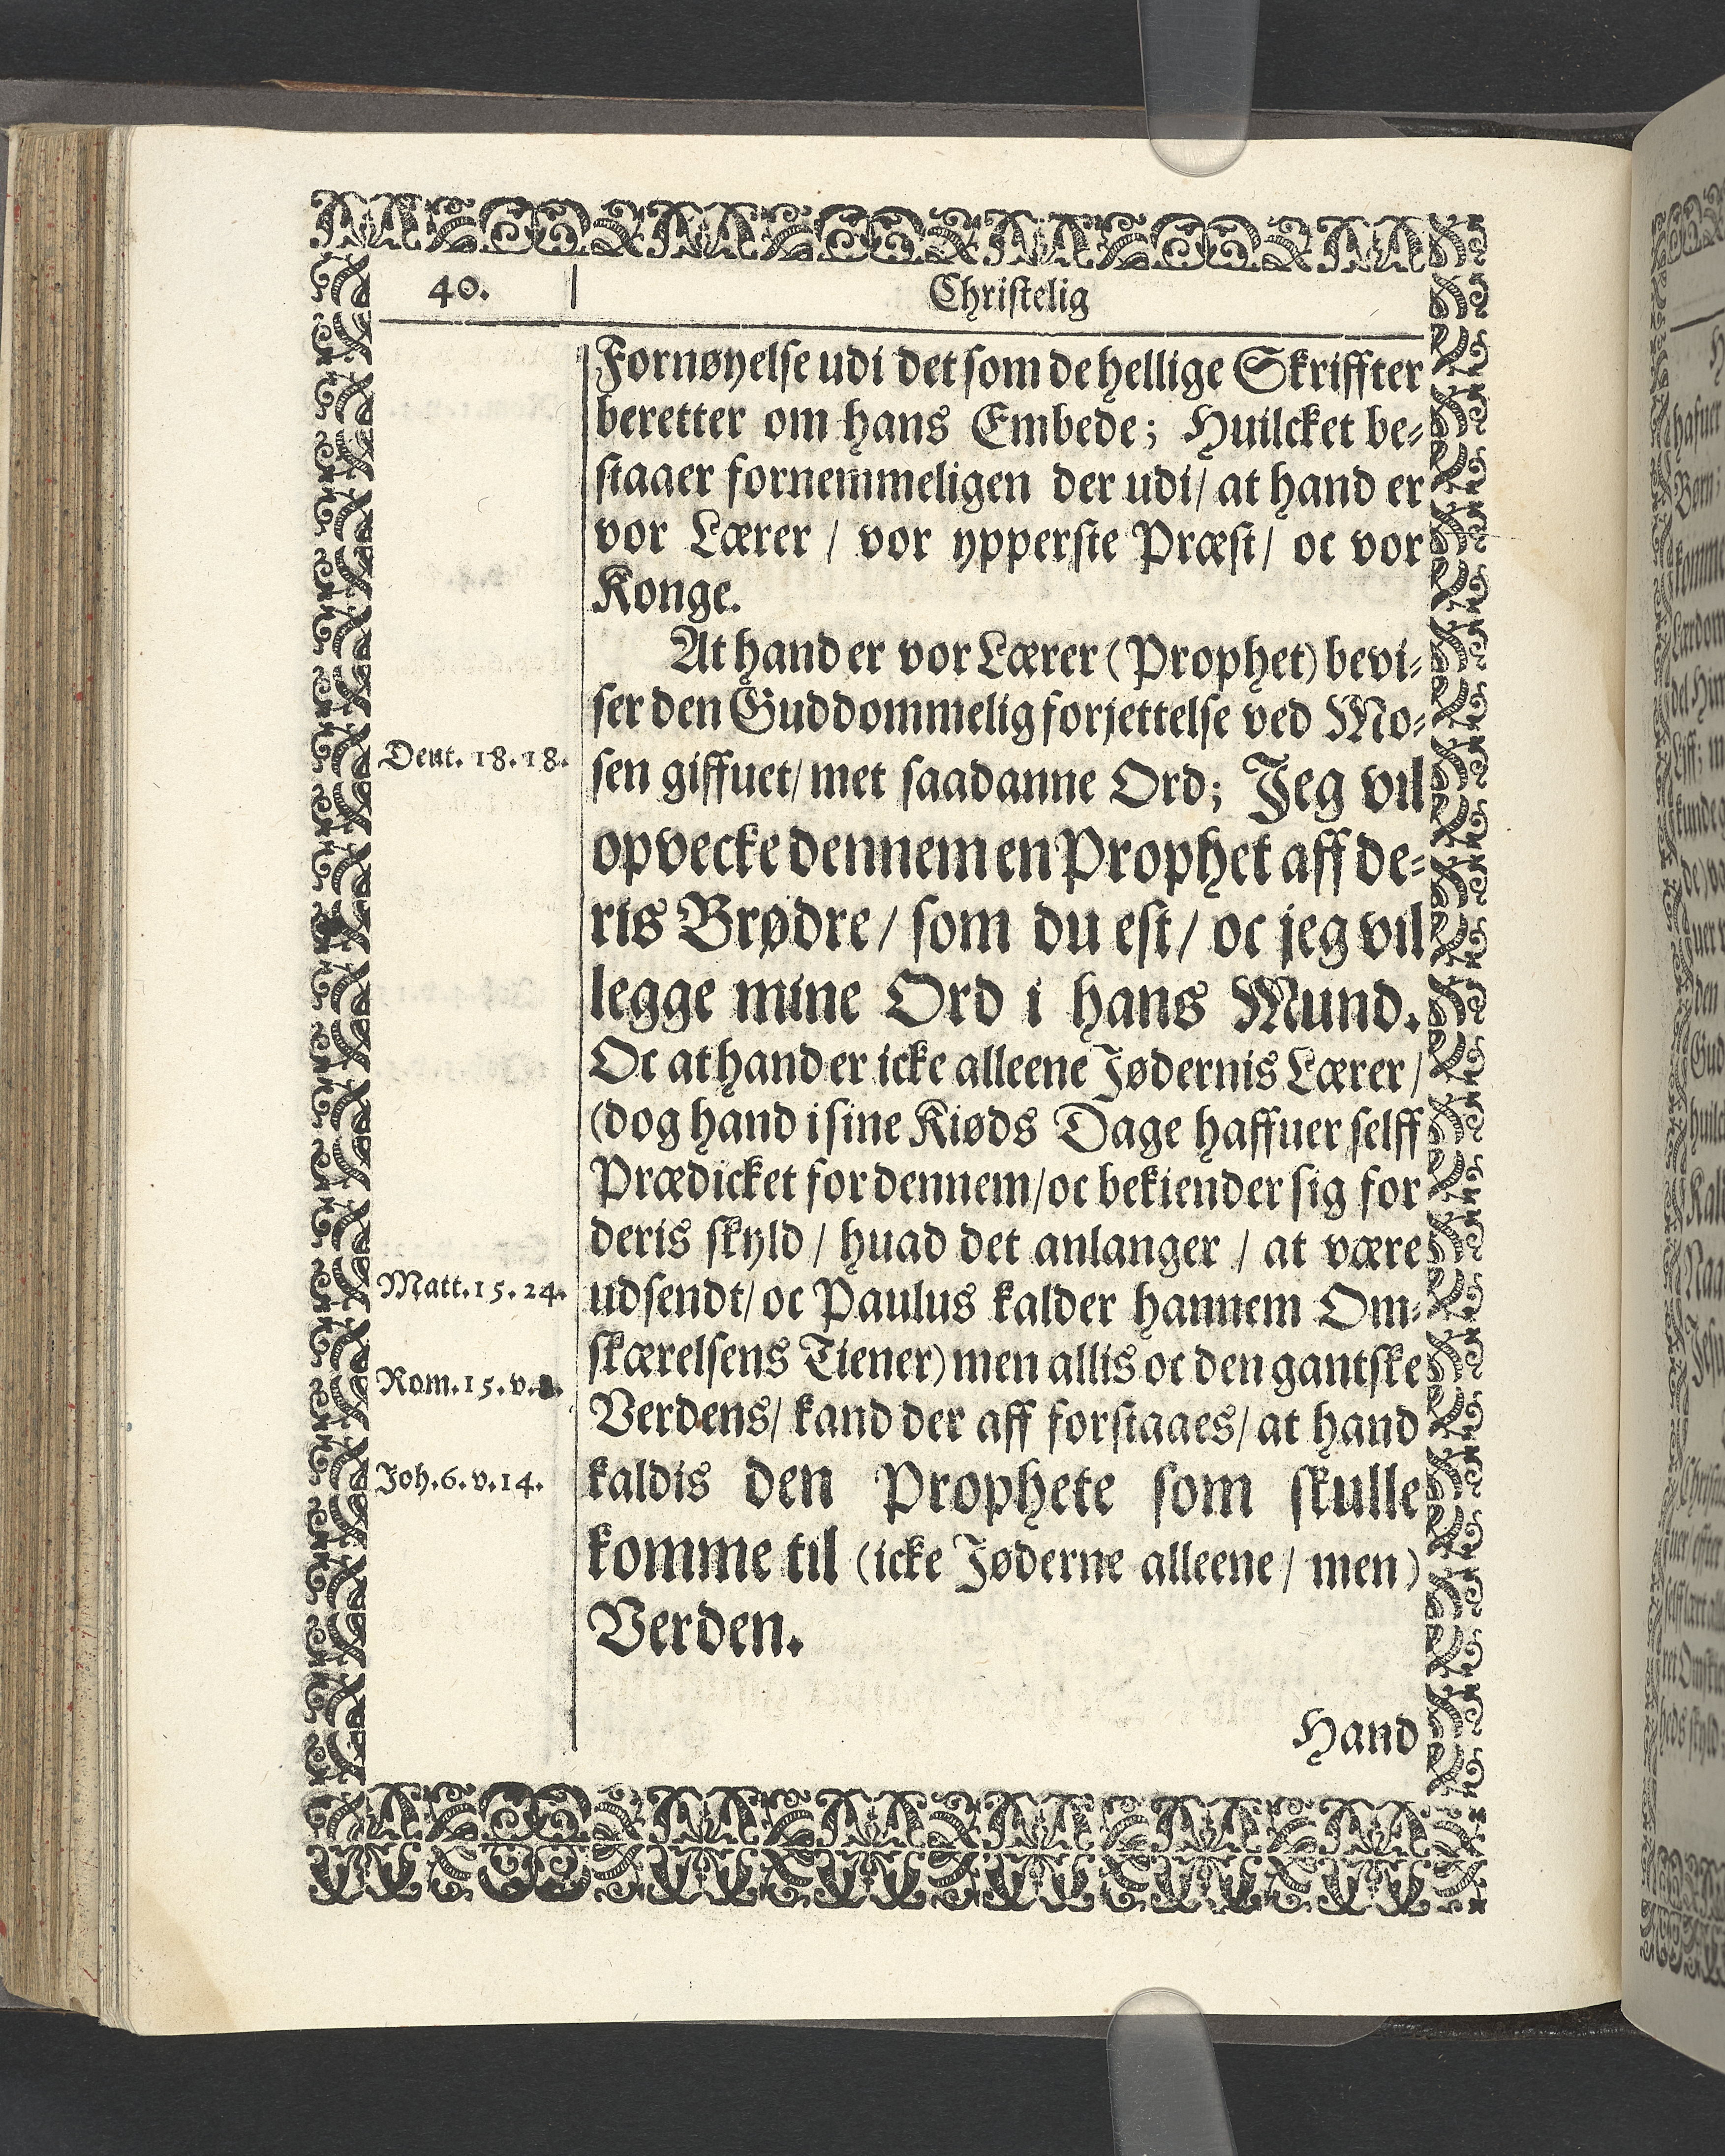 40.
Christelig
Fornøyelse udi det som de hellige Skriffter
beretter om hans Embede; Huilcket be-
staaer fornemmeligen der udi/ at hand er
vor Lærer / vor ypperste Præst/ oc vor
Konge.
At hand er vor Lærer (Prophet) bevi-
ser den Guddommelig forjettelse ved Mo-
Deut. 18. 18.
sen giffuet/ met saadanne Ord; Jeg vil
opvecke dennem en Prophet aff de-
ris Brødre/ som du est/ oc jeg vil
legge mine Ord i hans Mund.
Oc at hand er icke alleene Jødernis Lærer/
(dog hand i sine Kiøds Dage haffuer selff
Prædicket for dennem/ oc bekiender sig for
deris skyld / huad det anlanger / at være
Matt. 15. 24.
udsendt/ oc Paulus kalder hannem Om-
skærelsens Tiener) men allis oc den gantske
Rom. 15. v. 8.
Verdens/ kand der aff forstaaes/ at hand
Joh. 6. v. 14.
kaldis den Prophete som skulle
komme til (icke Jøderne alleene/ men)
Verden.
Hand